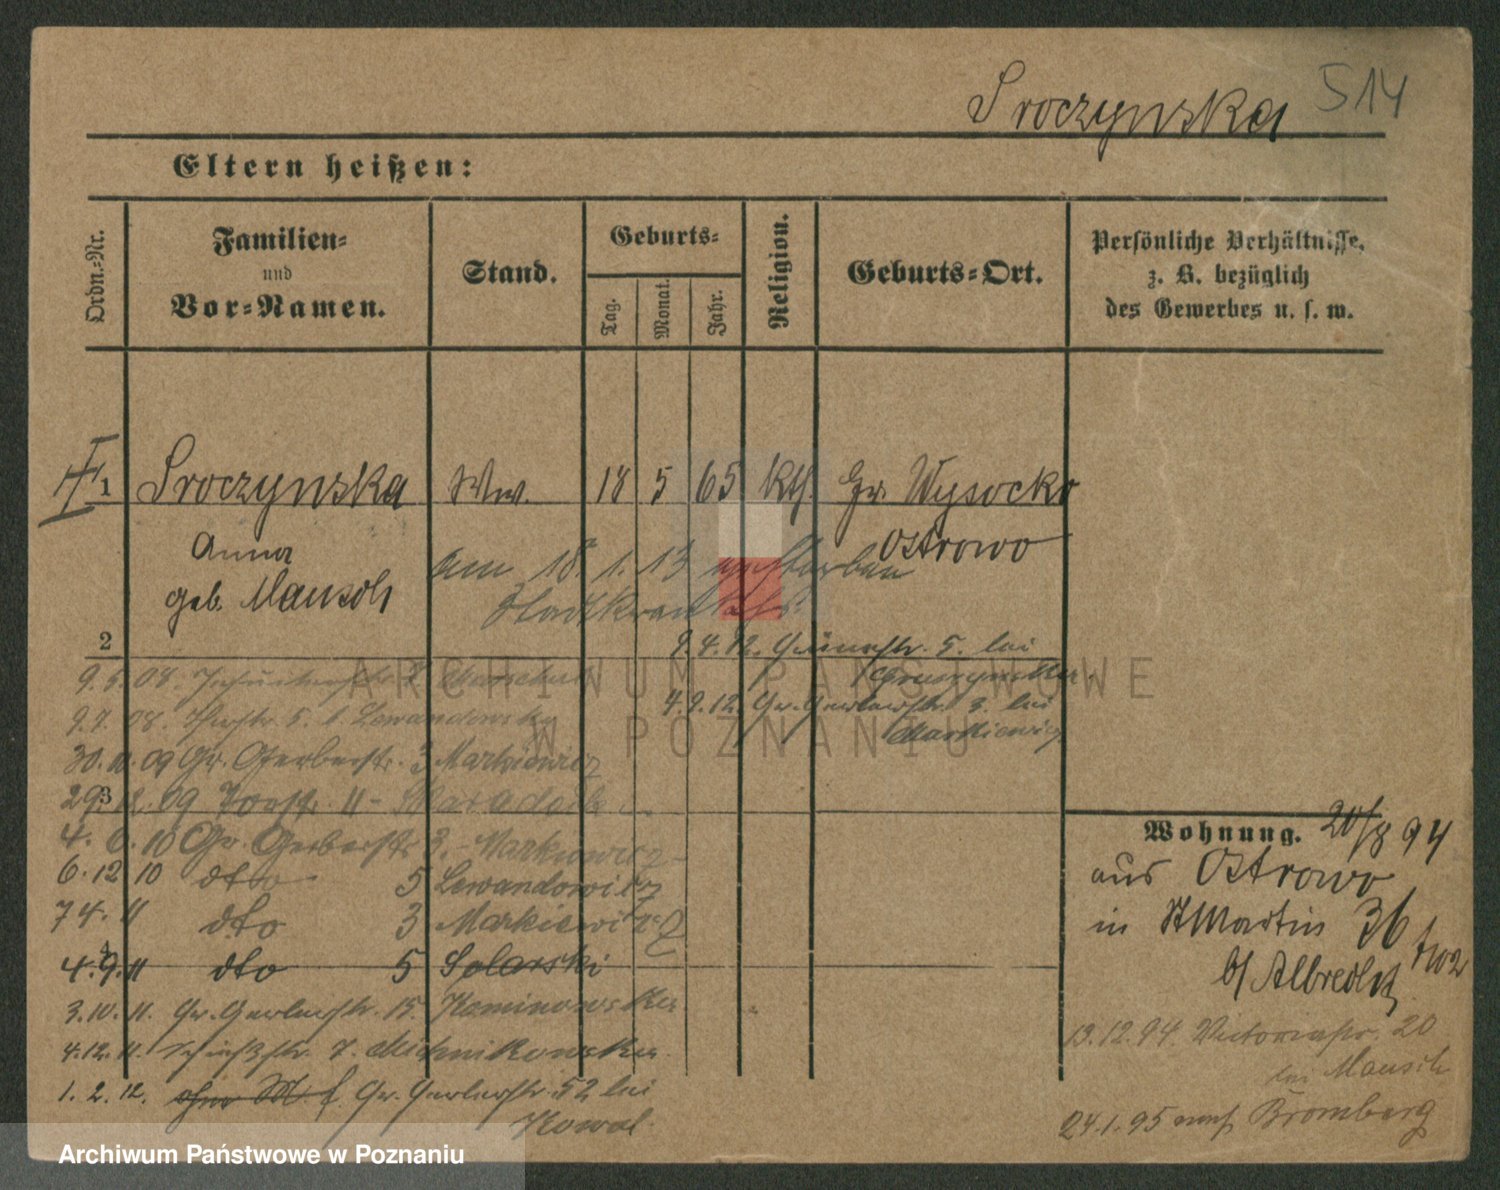 Sroczynska 514
Eltern heißen:
Ordn.-Nr.
Familien-
und
Vor-Namen.
Stand.
Geburts-
Tag.
Monat.
Jahr.
Religion.
Geburts-Ort.
Persönliche Verhältnisse,
z. B. bezüglich
des Gewerbes u. s. w.
1 Sroczynska Ww. 18 5 65 kth. Gr. Wysocko
Anna Ostrowo
geb. Mausolf
am 18. 1. 13 gestorben
Stadtkrankhs.
2
9.4.12. 5. bei
9.5.08.
4.9.12. Gr. Gerberstr. 3. bei
Markiewicz
9.7.08. 5. b. Lewandowska
30.10.09 Gr. Gerberstr. 3 Markiewicz
3
29.12.09 11
4. 6. 10 Gr. Gerberstr. 3. Markiewicz
6. 12 10 dto 5 Lewandowicz
7 4. 11 dto 3 Markiewicz
4. 9. 11 dto 5 Solarski
3.10.11. Gr. Gerberstr. 15. Kaminowska
4.12.11. 7. Michnikowska
1. 2. 12. Gr. Gerberstr. 52 bei
Kowal.
Wohnung. 20/8 94
aus Ostrowo
in St Martin 36
b/ Albrecht
13.12.94. Victoriastr. 20
bei Mausolf
24.1.95 nach Bromberg
ARCHIWUM PAŃSTWOWE
W POZNANIU
Archiwum Państwowe w Poznaniu